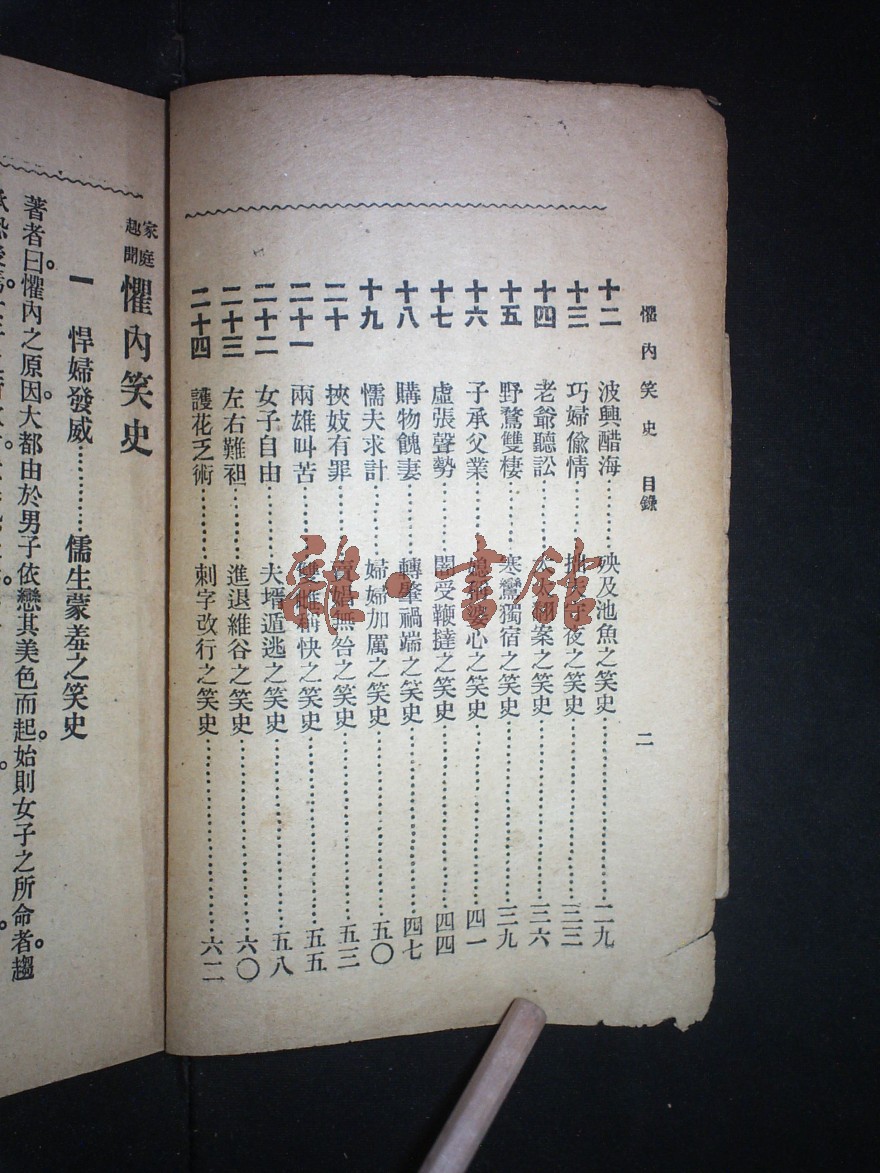 懼內笑史 目錄 二
十二 波興醋海………殃及池魚之笑史………二九
十三 巧婦偷情………拙夫守夜之笑史………三三
十四 老爺聽訟………太太翻案之笑史………三六
十五 野鶩雙棲………寒鸞獨宿之笑史………三九
十六 子承父業………媳稱婆心之笑史………四一
十七 虛張聲勢………闇受鞭撻之笑史………四四
十八 購物餽妻………轉肇禍端之笑史………四七
十九 懦夫求計………婦婦加厲之笑史………五〇
二十 挾妓有罪………賣娼無咎之笑史………五三
二十一 兩雄叫苦………雙雌稱快之笑史………五五
二十二 女子自由………夫壻遁逃之笑史………五八
二十三 左右難袒………進退維谷之笑史………六〇
二十四 護花乏術………刺字改行之笑史………六二
家庭趣聞 懼內笑史
一 悍婦發威………儒生蒙羞之笑史
著者曰。懼內之原因。大都由於男子依戀其美色而起。始則女子之所命者。趨
雅·書館